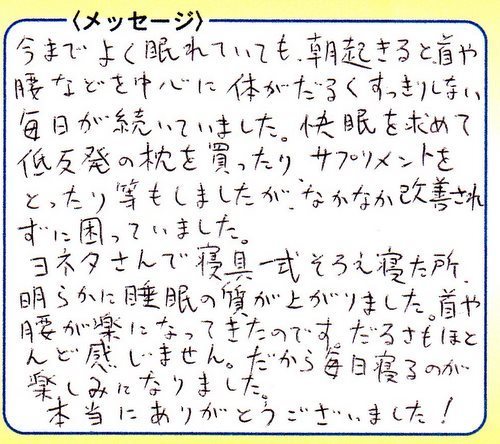 〈メッセージ〉
今までよく眠れていても、朝起きると首や
腰などを中心に体がだるくすっきりしない
毎日が続いていました。快眠を求めて
低反発の枕を買ったり、サプリメントを
とったり等もしましたが、なかなか改善され
ずに困っていました。
ヨネタさんで寝具一式そろえ寝た所、
明らかに睡眠の質が上がりました。首や
腰が楽になってきたのです。だるさもほと
んど感じません。だから毎日寝るのが
楽しみになりました。
本当にありがとうございました！